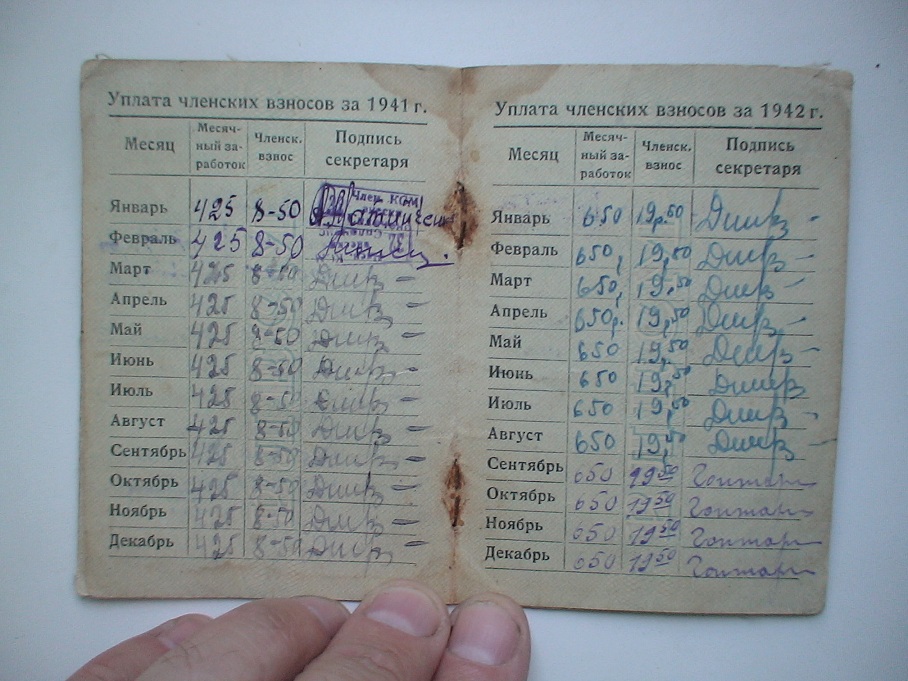 Уплата членских взносов за 1941 г.
Месяц Месяч-ный за-работок Членск. взнос Подпись секретаря
Январь 425 8-50
Член КОМ
Февраль 425 8-50
Март 425 8-50
Апрель 425 8-50
Май 425 8-50
Июнь 425 8-50
Июль 425 8-50
Август 425 8-50
Сентябрь 425 8-50
Октябрь 425 8-50
Ноябрь 425 8-50
Декабрь 425 8-50
Уплата членских взносов за 1942 г.
Месяц Месяч-ный за-работок Членск. взнос Подпись секретаря
Январь 650 19,50
Февраль 650, 19,50
Март 650, 19,50
Апрель 650р. 19,50
Май 650 19,50
Июнь 650 19,50
Июль 650 19,50
Август 650 19,50
Сентябрь 650 19 50 Гонтарь
Октябрь 650 19 50 Гонтарь
Ноябрь 650 19 50 Гонтарь
Декабрь 650 19 50 Гонтарь